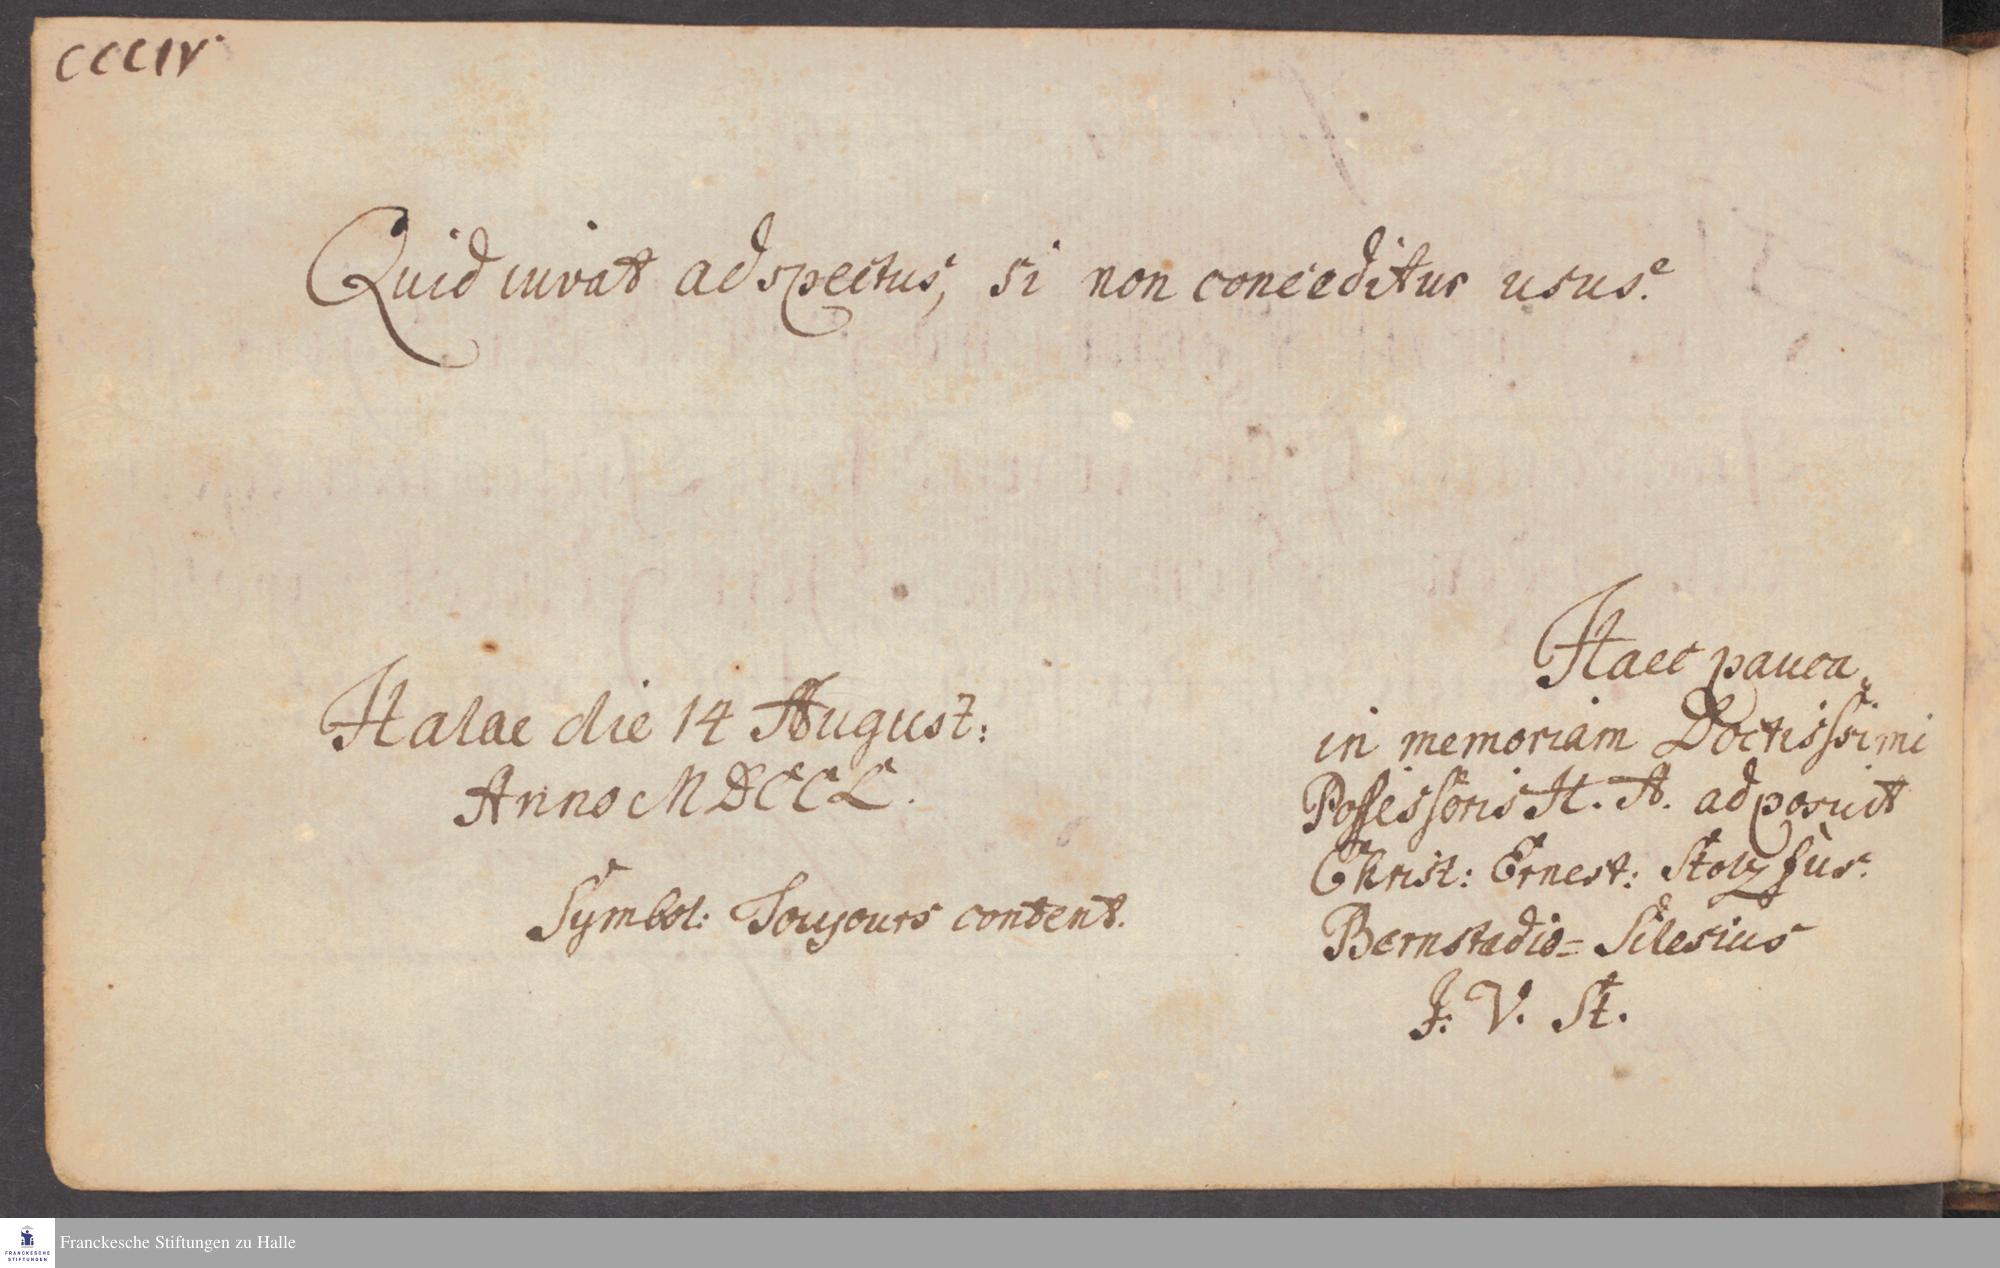 CCCIV.
Quid iuvat adspectus, si non conceditur usus.
Halae die 14 August:
Anno MDCCL.
Symbol: Toujours content.
Haec pauca
in memoriam Doctissimi
Possessoris H. A. adposuit
Christ: Ernest: Stolzfus.
Bernstadio= Silesius
J. V. St.
FRANCKESCHE
STIFTUNGEN
Franckesche Stiftungen zu Halle